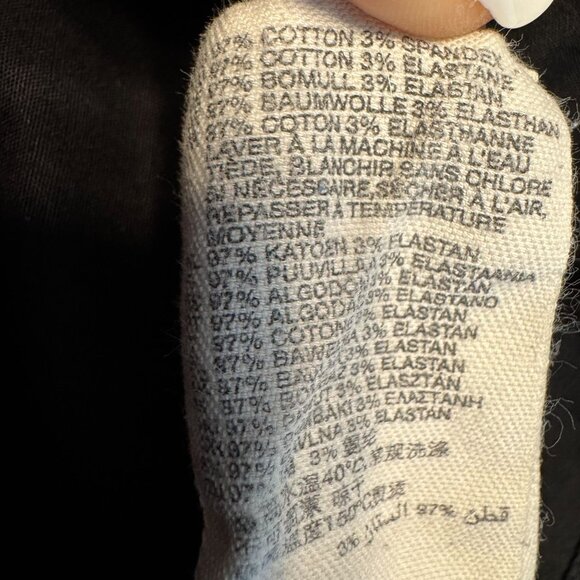 97% COTTON 3% SPANDEX
97% COTTON 3% ELASTANE
97% BOMULL 3% ELASTAN
97% BAUMWOLLE 3% ELASTHAN
97% COTON 3% ELASTHANNE
LAVER À LA MACHINE À L'EAU
TIÈDE, BLANCHIR SANS CHLORE
SI NÉCESSAIRE, SÉCHER À L'AIR,
REPASSER À TEMPÉRATURE
MOYENNE
97% KATOEN 3% ELASTAN
97% PUUVILLAA 3% ELASTAANIA
97% ALGODÓN 3% ELASTANO
97% ALGODÃO 3% ELASTAN
97% COTONE 3% ELASTAN
97% BAWEŁNA 3% ELASTAN
97% 3% ELASTAN
97% 3% ELASZTÁN
97% 3% ΕΛΑΣΤΑΝΗ
97% BAVLNA 3% ELASTAN
97% 3% 氨纶
水温40℃常规洗涤
晾干
温度150℃
قطن %97 %3